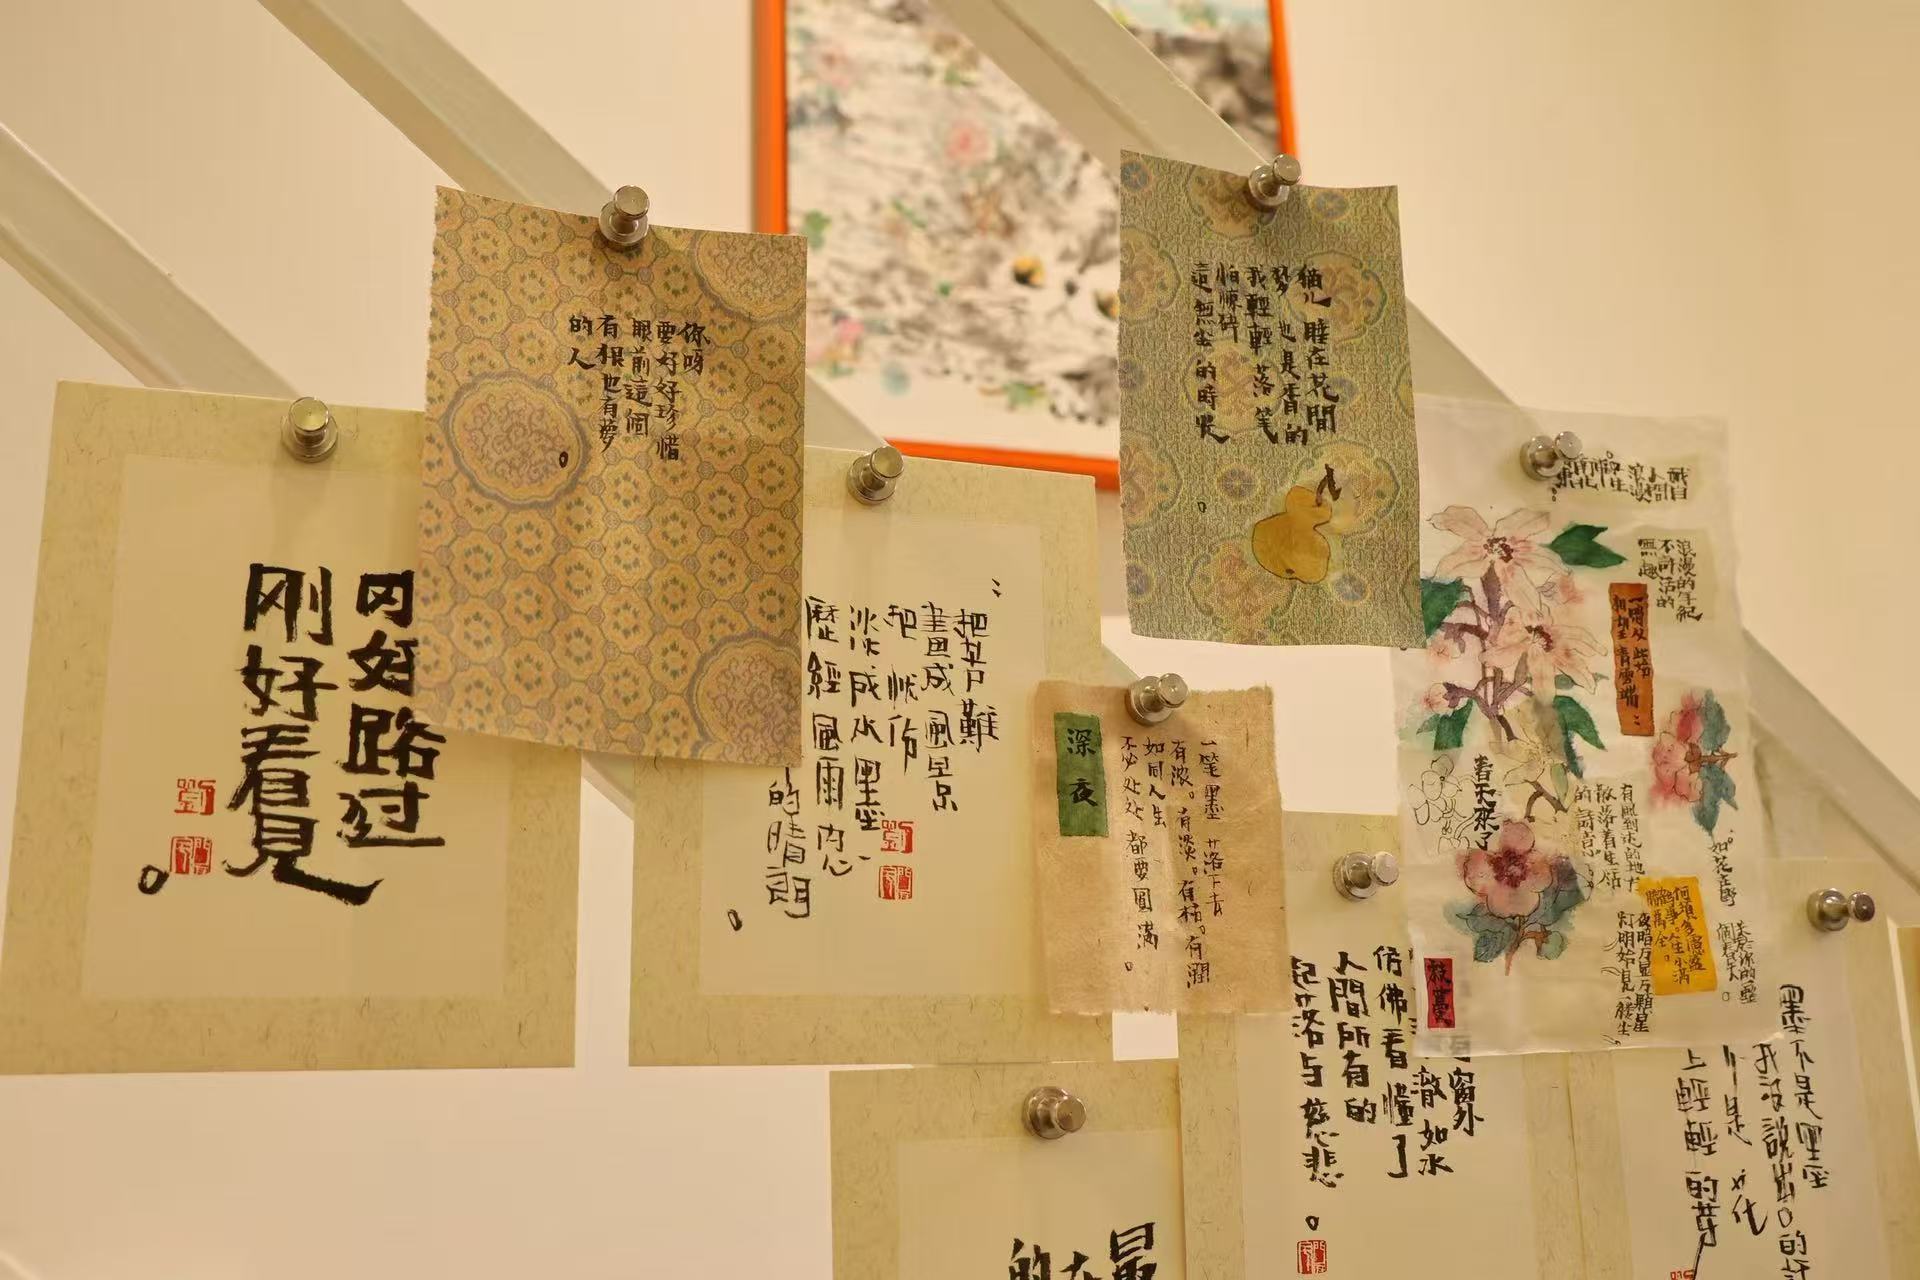 刚好路过
刚好看見
你呀
要好好珍惜
眼前這個
有狠也有夢
的人。
把苦難
畫成風景
把忧伤
淡成水墨
歷經風雨内心
的晴朗。
猫儿睡在花間
梦也是香的
我輕輕落笔
怕惊碎
這無尘的時光。
深夜
一笔墨落下去
有浓。有淡。有枯。有潤
如同人生
不必处处都要圓滿。
浪漫的年紀
不許活的
無趣
相望青雲端
春天來了
有脚到达的地方
散落着生活
的詩意
何須多憂慮
人生小满
勝萬全。
夜暗方显万颗星
灯明始見一缕尘
窗外
澈如水
仿佛看懂了
人間所有的
起落与慈悲。
墨不是墨
我没說出口的
上輕輕的芽
最
的